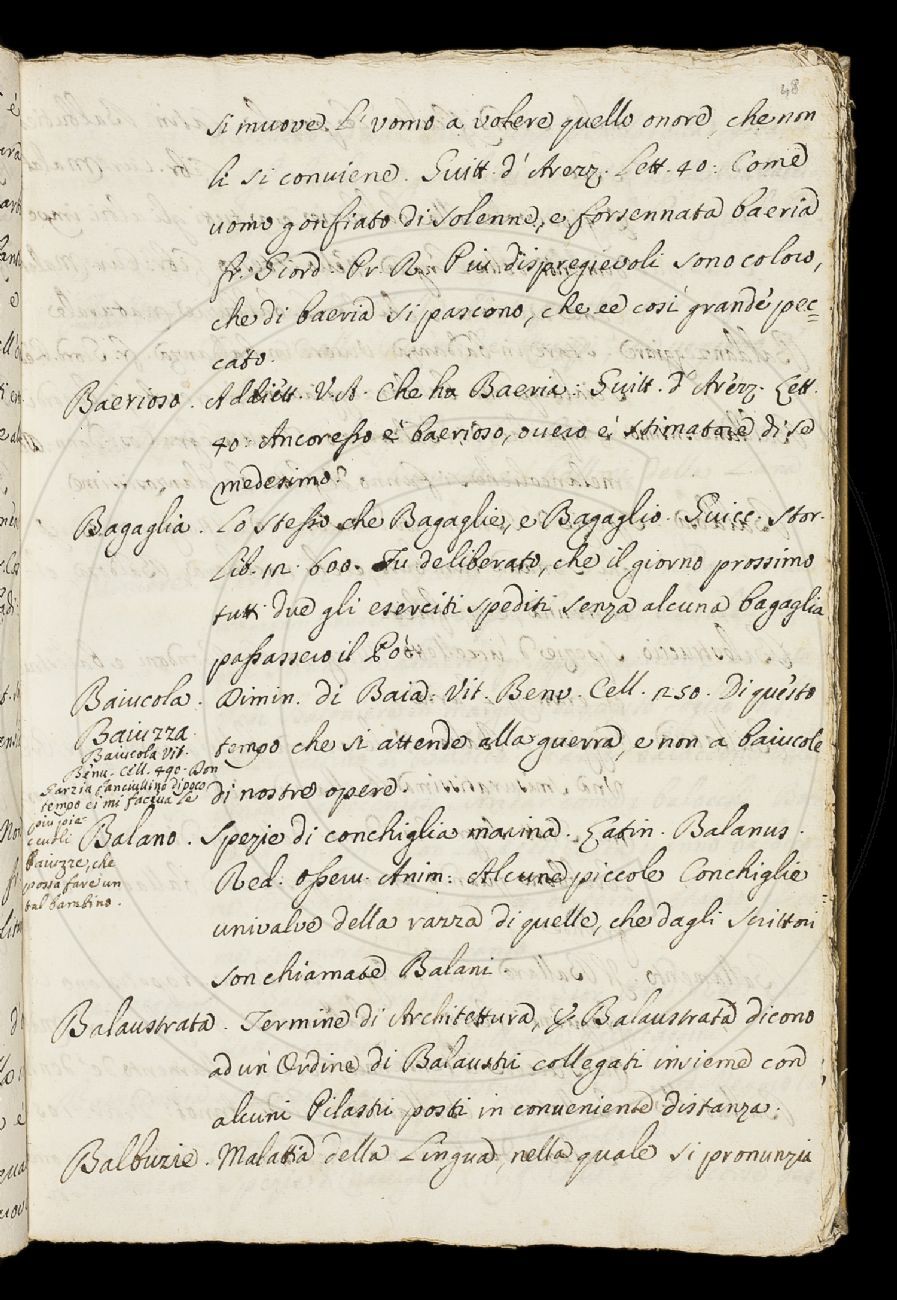 48
si muove. L'uomo a volere quello onore, che non
li si conviene. Guitt. d'Arezz. Lett. 40. Come
uomo gonfiato di solenne, e forsennata baeria
fr. Giord. Pr. R. Piu dispregievoli sono coloro,
che di baeria si pascono, che ee cosi grande pec=
cato.
Baerioso. Addiett. V.A. Che ha Baeria. Guitt. d'Arezz. Lett.
40. Ancoresso é baerioso, overo é stimatore di se
medesimo.
Bagaglia. Lo stesso che Bagaglie, e Bagaglio. Guicc. Stor.
Lib. 12. 600. Fu deliberato, che il giorno prossimo
tutti due gli eserciti spediti senza alcuna bagaglia
passassero il Pò
Baiucola. Dimin. di Baia. Vit. Benv. Cell. 250. Di questo
tempo che si attende alla guerra, e non a baiucole
di nostre opere
Baiuzza.
Baiucola Vit.
Benv. Cell. 490. Don
Garzia fanciullino di poco
tempo ei mi faceva le
piu pia
cevoli
baiuzze, che
possa fare un
tal bambino.
Balano. Spezie di conchiglia marina. Latin. Balanus.
Red. Osserv. Anim: Alcune piccole Conchiglie
univalve della razza di quelle, che dagli Scrittori
son chiamate Balani.
Balaustrata. Termine di Architettura, & Balaustrata dicono
ad un Ordine di Balaustri collegati insieme con
alcuni Pilastri posti in conveniente distanza.
Balbuzie. Malatia della Lingua, nella quale si pronunzia